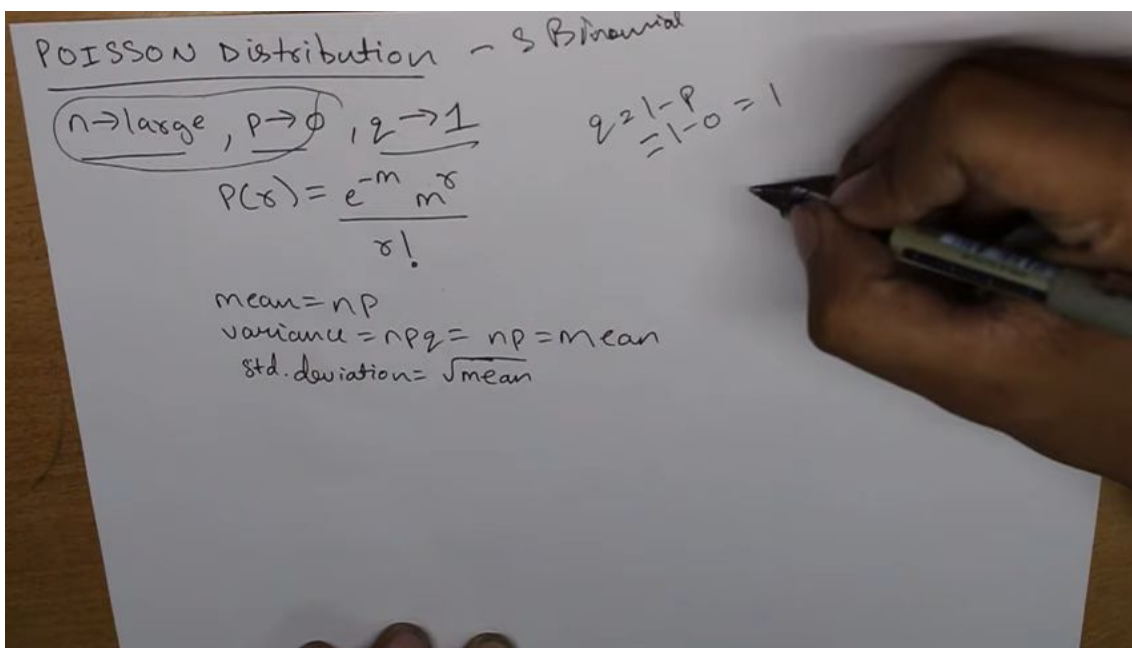 POISSON Distribution - 3 Binomial
n→large, p→ϕ, q→1
q = 1-p
= 1-0 = 1
P(r) = e^-m m^r
r!
mean = np
variance = npq = np = mean
std. deviation = √mean